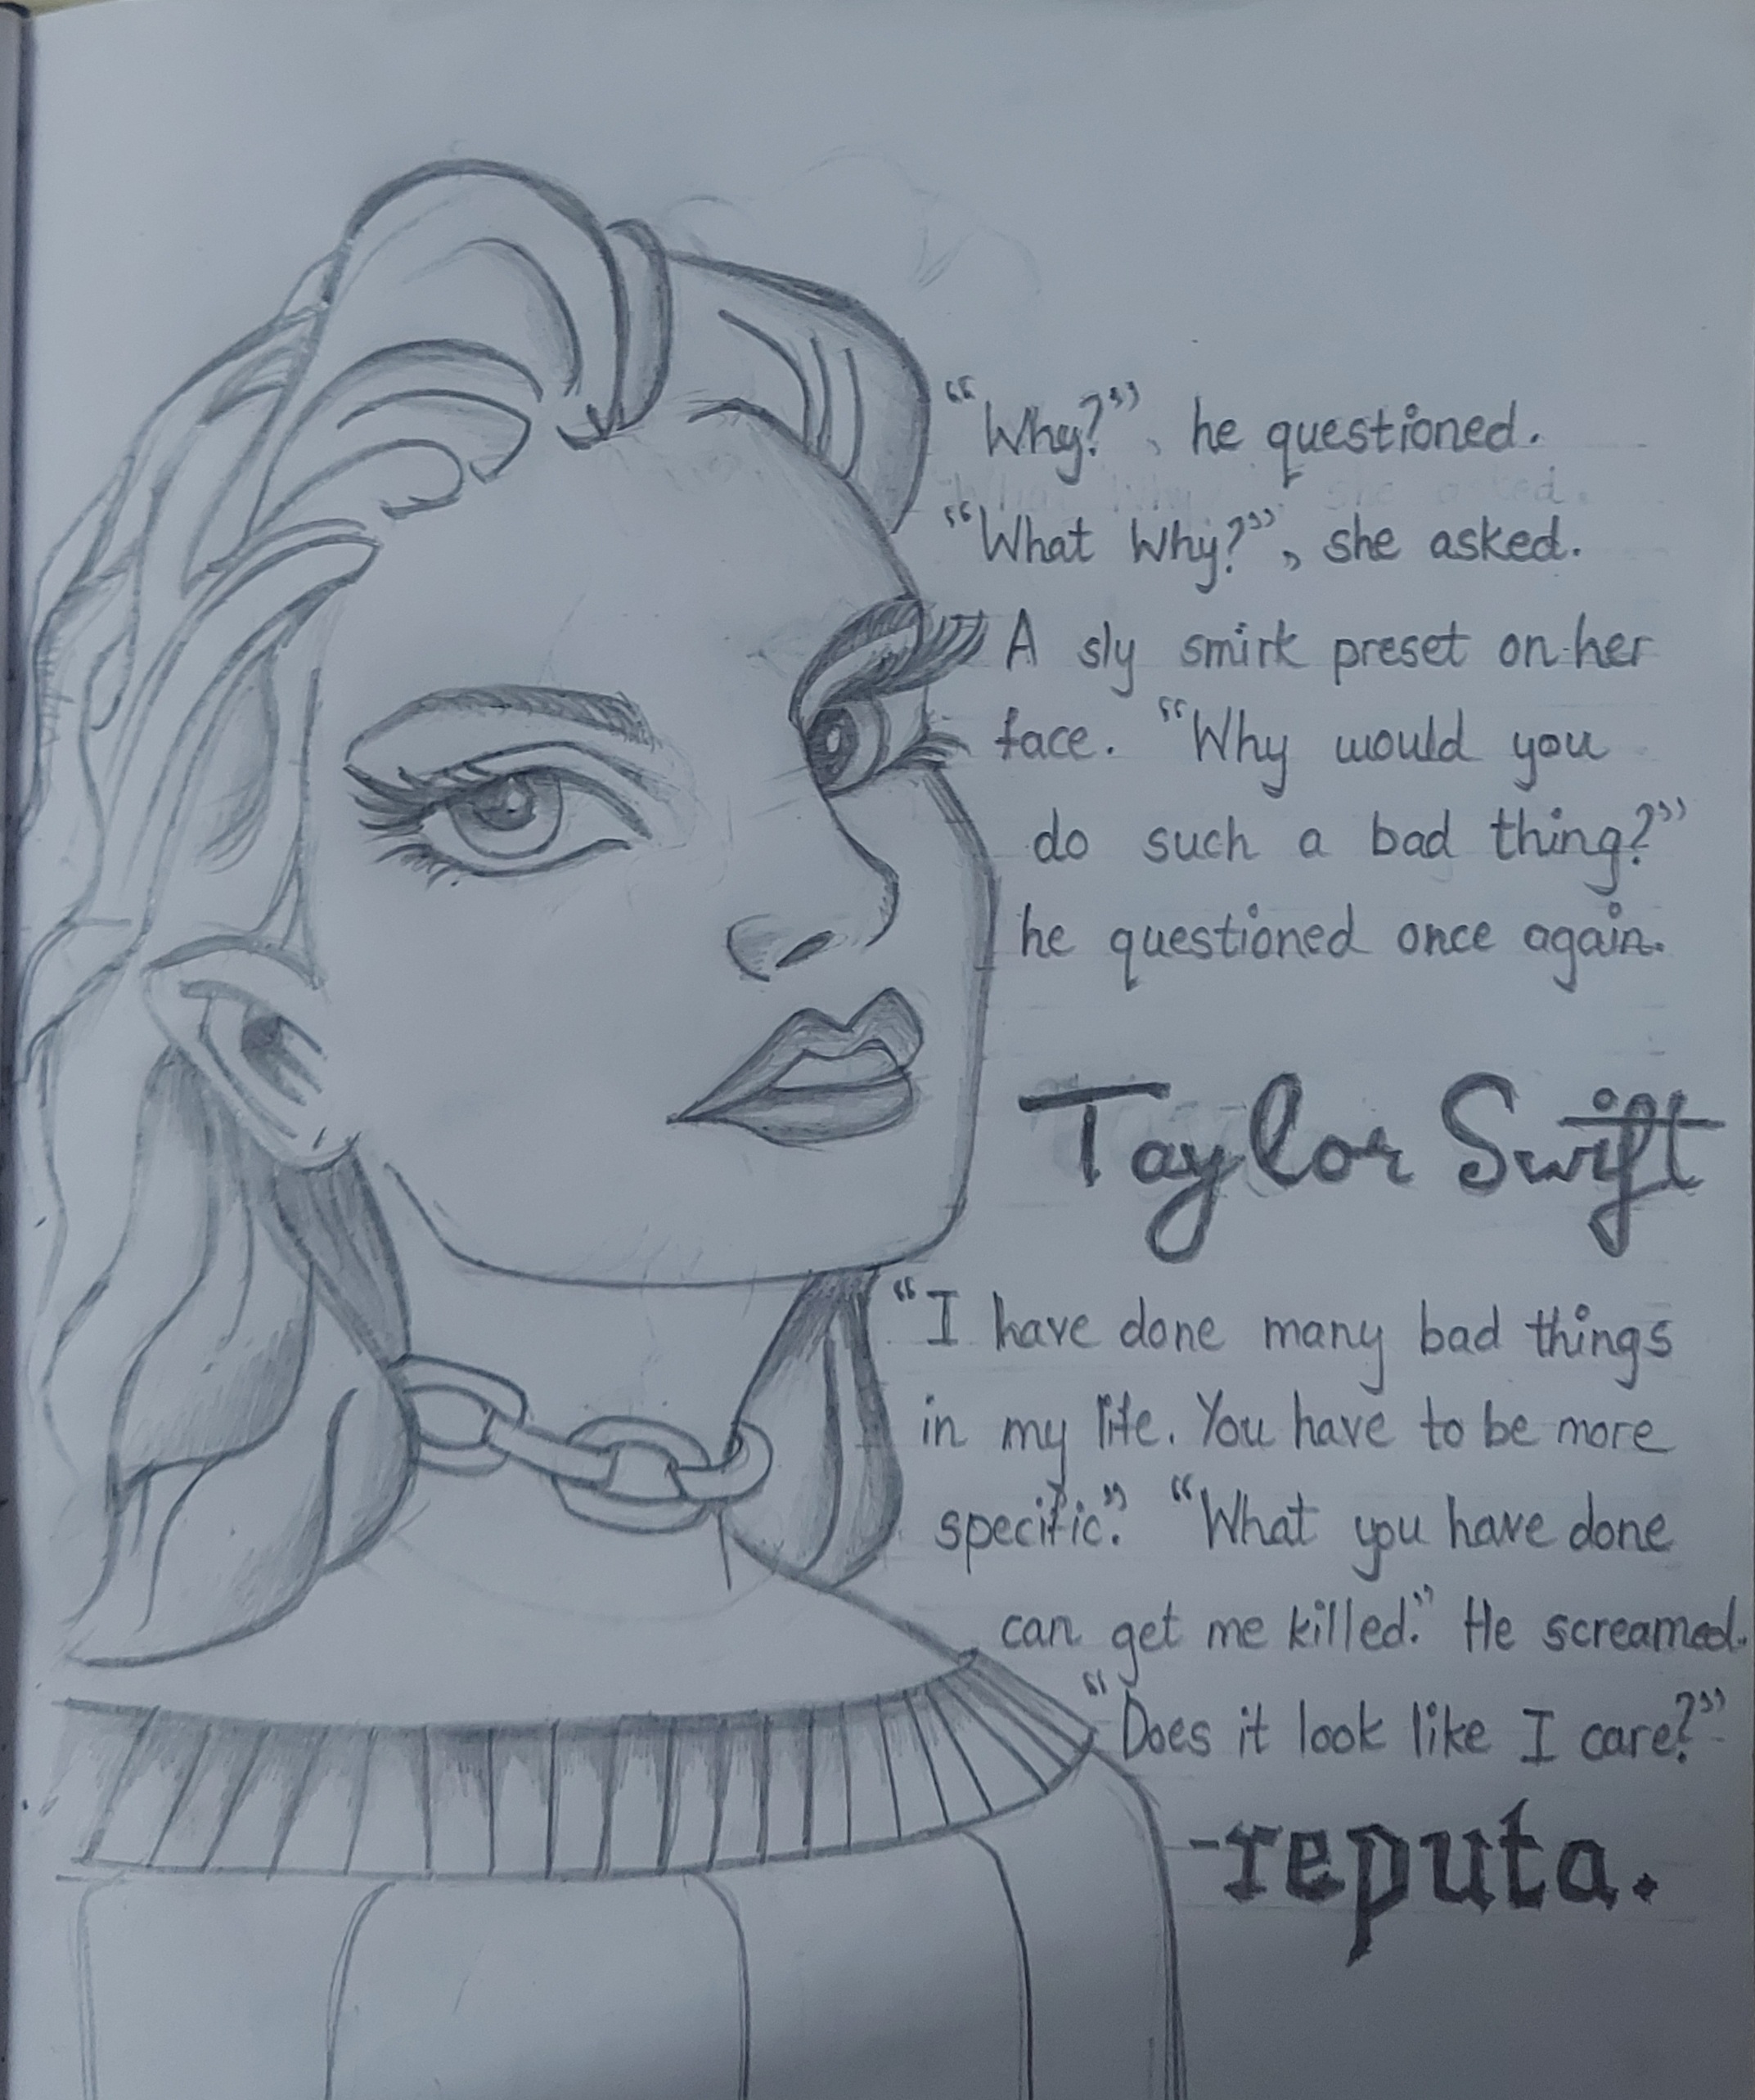 “Why?”, he questioned.
“What Why?”, she asked.
A sly smirk preset on her
face. “Why would you
do such a bad thing?”
he questioned once again.
Taylor Swift
“I have done many bad things
in my life. You have to be more
specific.” “What you have done
can get me killed.” He screamed.
“Does it look like I care?”
-reputa.